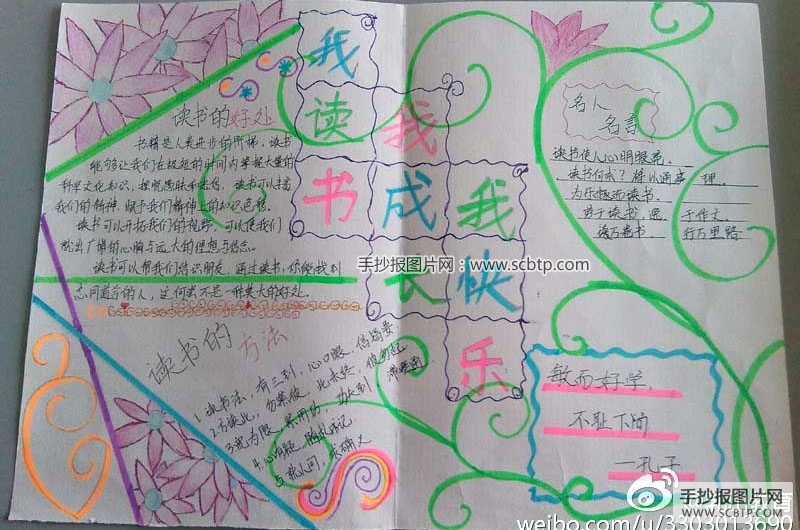 我
读
书
我
成
长
我
快
乐
读书的好处
书籍是人类进步的阶梯，读书
能够让我们在极短的时间内掌握大量的
科学文化知识，摆脱愚昧和迷信。读书可以
我们的精神，赋予我们精神上的
读书可以开拓我们的视野，可以使我们
广博的心胸与远大的理想与信念。
读书可以帮我们结识朋友，通过读书，你能找到
志同道合的人，这何尝不是一种莫大的好处。
读书的方法
1.读书法，有三到，心口眼，信皆要
2.方读此，勿慕彼，此未终，彼勿起
3.宽为限，紧用功，功夫到，滞塞通
4.心有疑，随札记
5.就人问，求确义
名人
名言
读书使人心明眼亮。
读书何求？将以通 理。
为乐趣而读书。
勇于读书，逸于作文
读万卷书 行万里路
敏而好学，
不耻下问
—孔子
手抄报图片网：www.scbtp.com
手抄报图片网
WWW.SCBTP.COM
weibo.com/u/3303013690